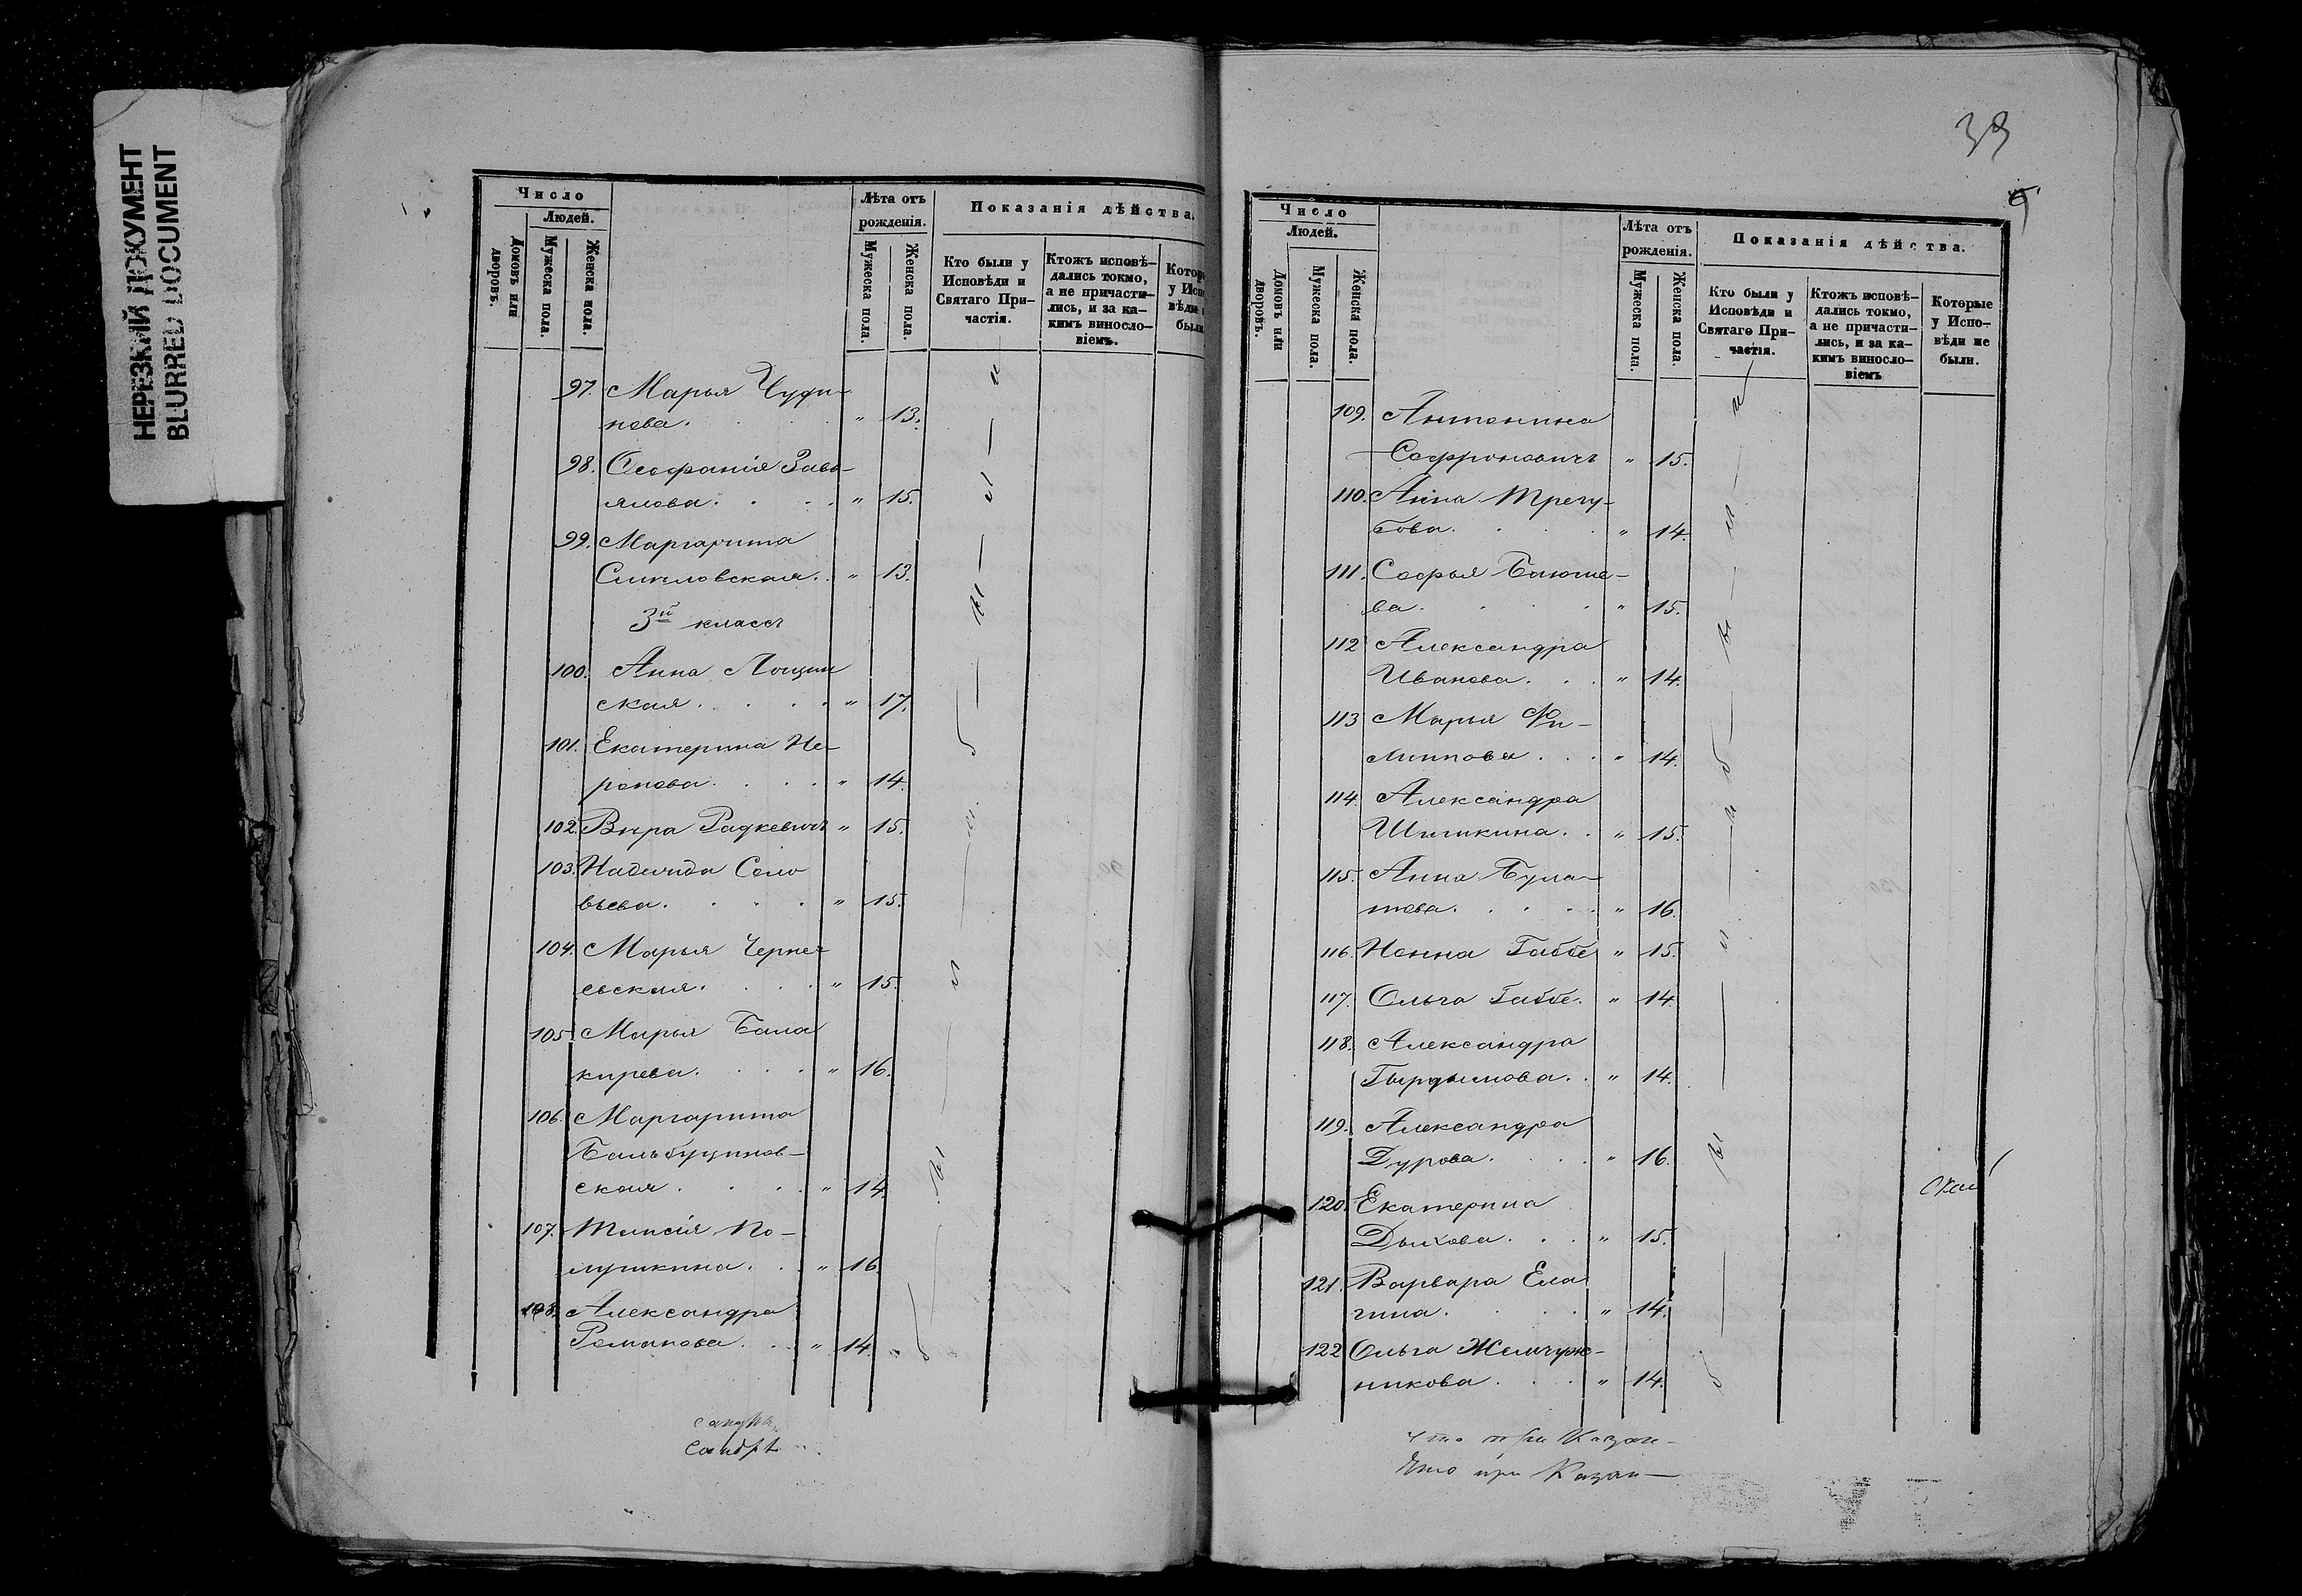 НЕРЕЗКИЙ ДОКУМЕНТ
BLURRED DOCUMENT
Число
Людей.
Домовъ или дворовъ.
Мужеска пола.
Женска пола.
Лѣта отъ рожденія.
Мужеска пола.
Женска пола.
Показанія дѣйства.
Кто были у Исповѣди и Святаго Причастія.
Ктожъ исповѣдались токмо, а не причастились, и за какимъ винословіемъ.
97. Марья Чуди-
нова. " 13.
98. Ѳеофанія Завь-
ялова. " 15.
99. Маргарита
" 13.
3й классъ
100. Анна Лощин
ская. " 17.
101. Екатерина Не-
ронова. " 14.
102. Вѣра Радкевичъ " 15.
103. Надежда Соло
вьева. " 15.
104. Марья Черне-
евская. " 15.
105. Марья Бала
кирева. " 16.
106. Маргарита
ская. " 14.
107. Таисія По-
лушкина. " 16.
108. Александра
Романова. " 14.
39
Число
Людей.
Домовъ или дворовъ.
Мужеска пола.
Женска пола.
Лѣта отъ рожденія.
Мужеска пола.
Женска пола.
Показанія дѣйства.
Кто были у Исповѣди и Святаго Причастія.
Ктожъ исповѣдались токмо, а не причастились, и за какимъ винословіемъ
Которые у Исповѣди не были.
109. Антонина
Софроновичъ " 15.
110. Анна Трегу-
бова. " 14.
111. Софья Баюше-
ва. " 15.
112 Александра
Иванова. " 14.
113 Марья Фи-
липпова. " 14.
114. Александра
Шишкина. " 15.
115. Анна Була-
това. " 16.
116. Нонна Габбе " 15.
117. Ольга Габбе. " 14.
118. Александра
Гырдымова. " 14.
119. Александра
Дурова. " 16.
120. Екатерина
Дыхова. " 15.
121. Варвара Ела
гина. " 14.
122 Ольга Жемчуж-
никова. " 14.
что при Казан-
Что при Казан-